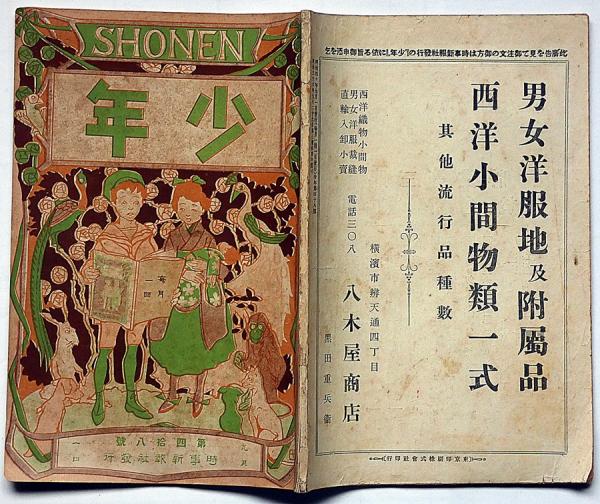 SHONEN
少年
毎月
一回
第四拾八號
時事新報社發行
九月
一日
此廣告を見て御注文の御方は時事新報社發行の「少年」に依る旨御申添を乞ふ
男女洋服地及附屬品
西洋小間物類一式
其他流行品種數
西洋織物小間物
男女洋服裁縫
直輸入卸小賣
電話三〇八
橫濱市辨天通四丁目
八木屋商店
黑田重兵衞
(東京印刷株式會社印行)